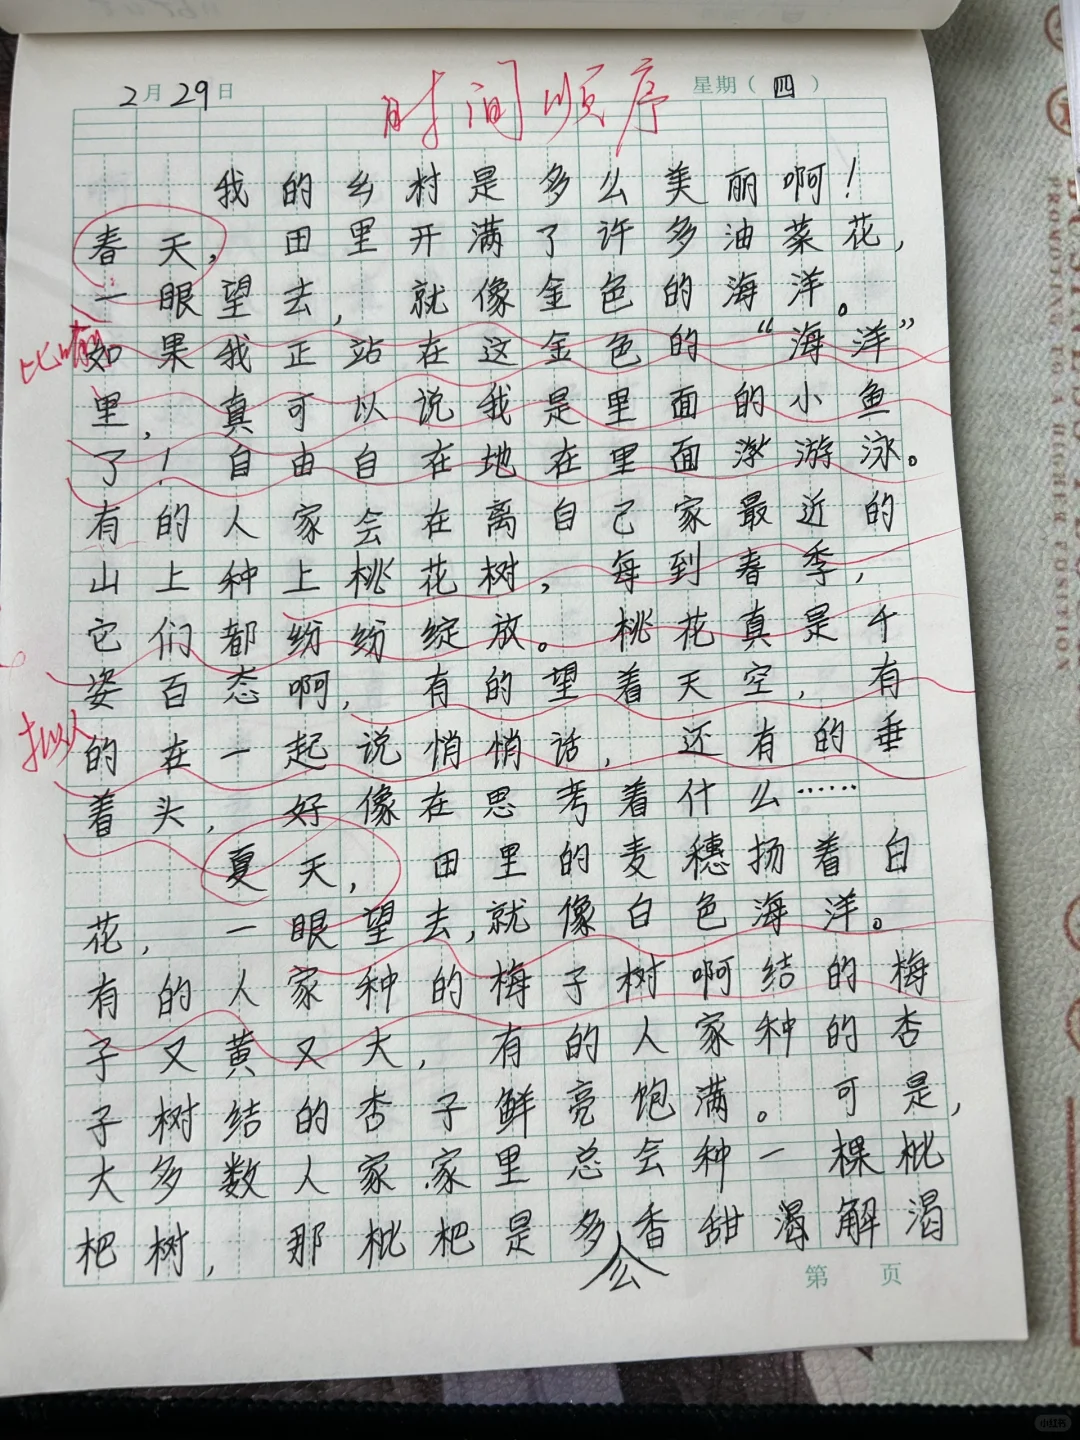 2月29日 时间顺序 星期（四）
我的乡村是多么美丽啊！
春天，田里开满了许多油菜花，
一眼望去，就像金色的海洋。
比喻
如果我正站在这金色的“海洋”
里，真可以说我是里面的小鱼
了！自由自在地在里面游泳。
有的人家会在离自己家最近的
山上种上桃花树，每到春季，
它们都纷纷绽放。桃花真是千
姿百态啊，有的望着天空，有
拟人
的在一起说悄悄话，还有的垂
着头，好像在思考着什么……
夏天，田里的麦穗扬着白
花，一眼望去，就像白色海洋。
有的人家种的梅子树啊结的梅
子又黄又大，有的人家种的杏
子树结的杏子鲜亮饱满。可是，
大多数人家家里总会种一棵枇
杷树，那枇杷是多么香甜解渴
第 页
PROMOTING TO A HIGHER POSITION
小红书